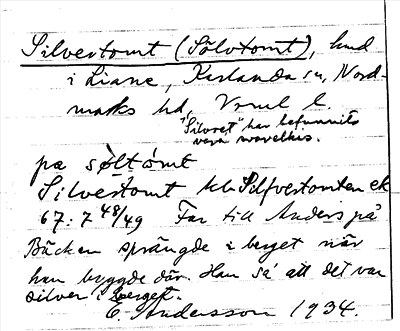 Silvertomt (Sölvtomt), hmd
i Liane, Karlanda sn, Nord-
marks hd, Vrml l.
"Silvret" har befunnits
vara svavelkis.
pæ søltómt
Silvertomt kb Silfvertomten ek
67:7 48/49 Far till Anders på
Bäcken sprängde i berget när
han byggde där. Han sa att det var
silver i berget.
E. Andersson 1934.